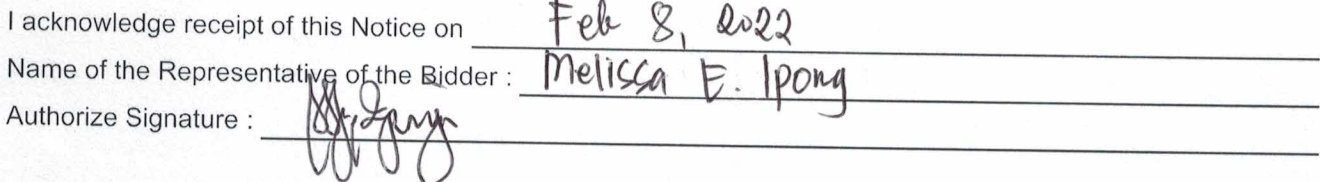 I acknowledge receipt of this Notice on Feb 8, 2022
Name of the Representative of the Bidder : Melissa E. Ipong
Authorize Signature :